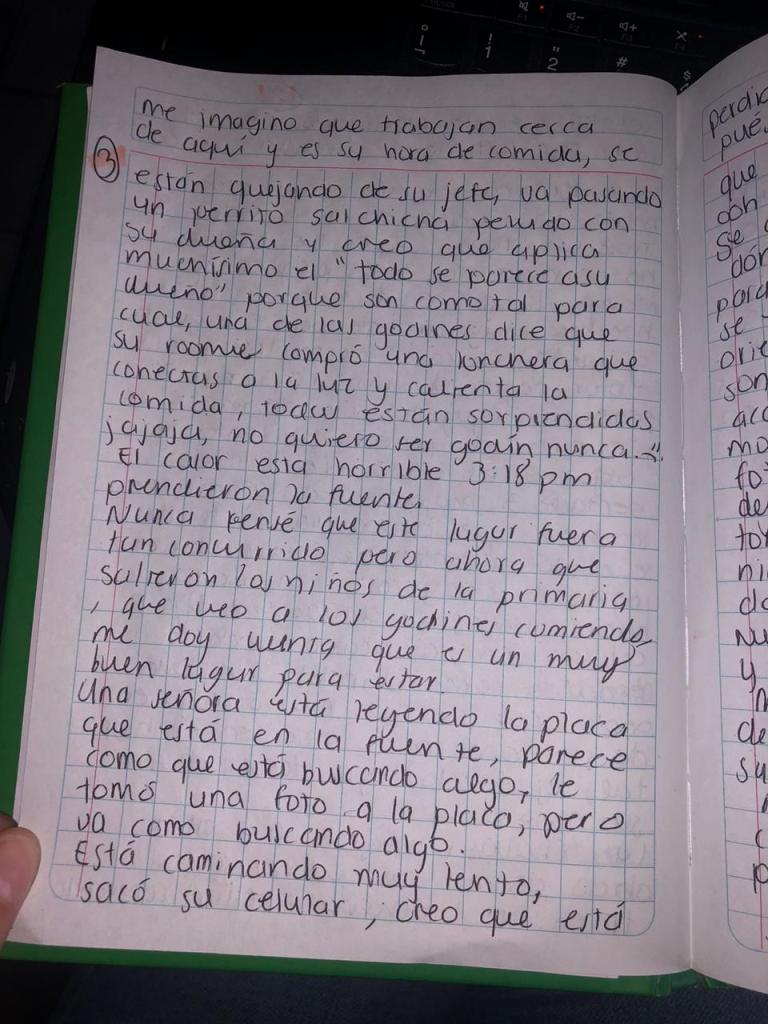 me imagino que trabajan cerca
de aquí y es su hora de comida, se
3
están quejando de su jefe, va pasando
un perrito salchicha peludo con
su dueña y creo que aplica
muchísimo el "todo se parece a su
dueño" porque son como tal para
cual, una de las godines dice que
su roomie compró una lonchera que
conectas a la luz y calienta la
comida, todas están sorprendidas
jajaja, no quiero ser godín nunca.
El calor esta horrible 3:18 pm
prendieron la fuente.
Nunca pensé que este lugar fuera
tan concurrido pero ahora que
salieron los niños de la primaria
, que veo a los godines comiendo,
me doy cuenta que es un muy
buen lugar para estar.
Una señora está leyendo la placa
que está en la fuente, parece
como que está buscando algo, le
tomó una foto a la placa, pero
va como buscando algo.
Está caminando muy lento,
sacó su celular, creo que está
perdid
pué
que
se
son
de
ni
Nu
y
de
su